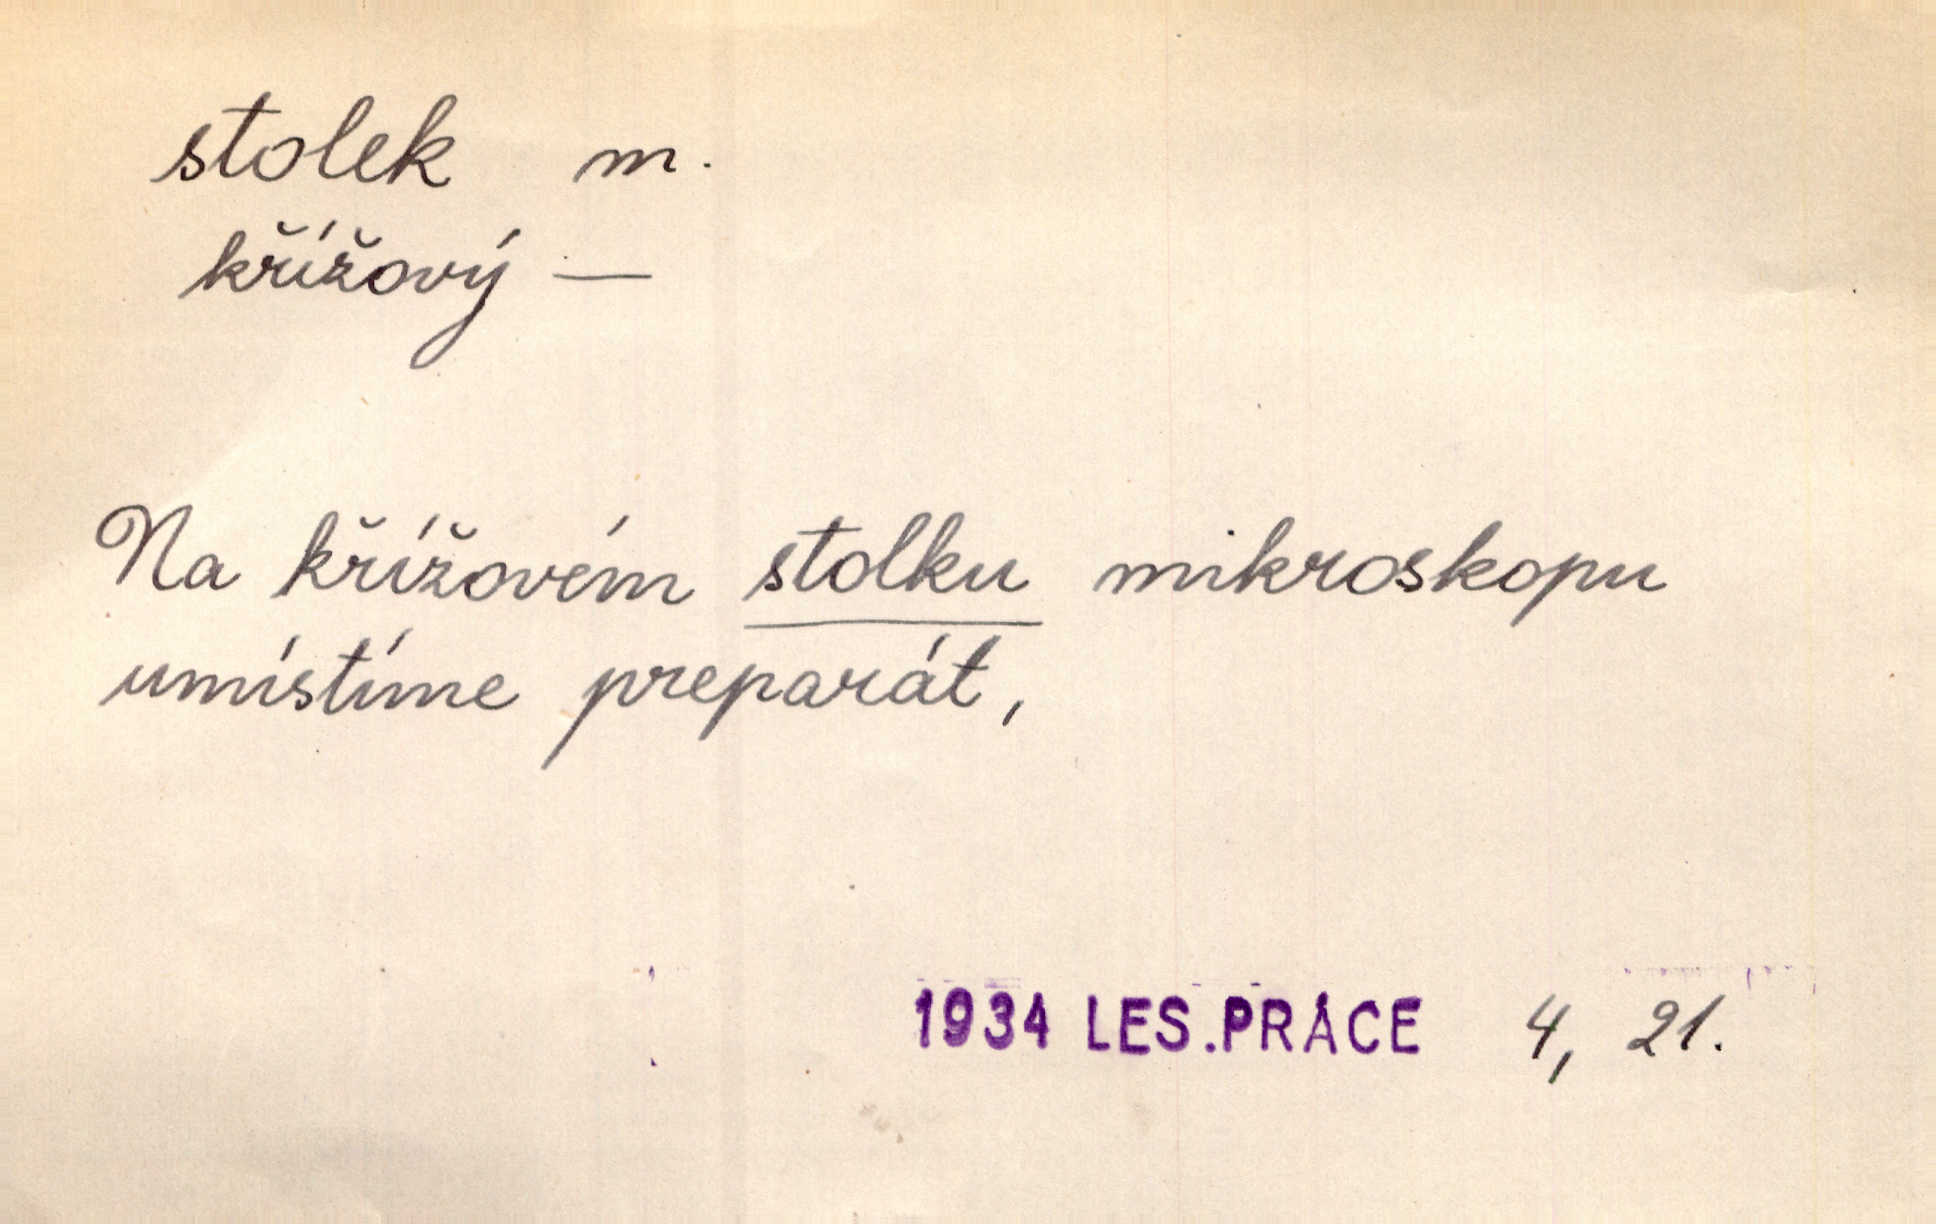 stolek m.
křížový —
Na křížovém stolku mikroskopu
umístíme preparát,
1934 LES.PRÁCE 4, 21.